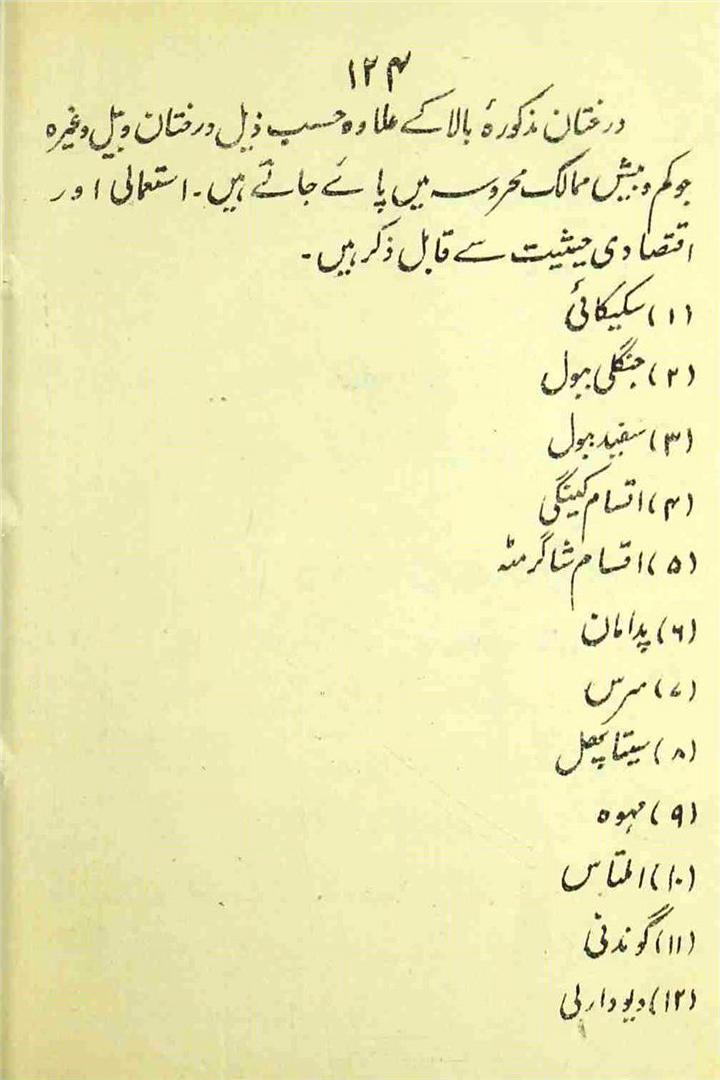 ۱۲۴
درختان مذکورۂ بالا کے علاوہ حسب ذیل درختان و بیل وغیرہ
جو کم و بیش ممالک محروسہ میں پائے جاتے ہیں۔ استعمالی اور
اقتصادی حیثیت سے قابل ذکر ہیں۔
(۱) سکیکائی
(۲) جنگلی ببول
(۳) سفید ببول
(۴) اقسام کینگی
(۵) اقسام شاگرمٹہ
(۶) پدامان
(۷) سرس
(۸) سیتا پھل
(۹) مہوہ
(۱۰) املتاس
(۱۱) گوندنی
(۱۲) دیودارلی